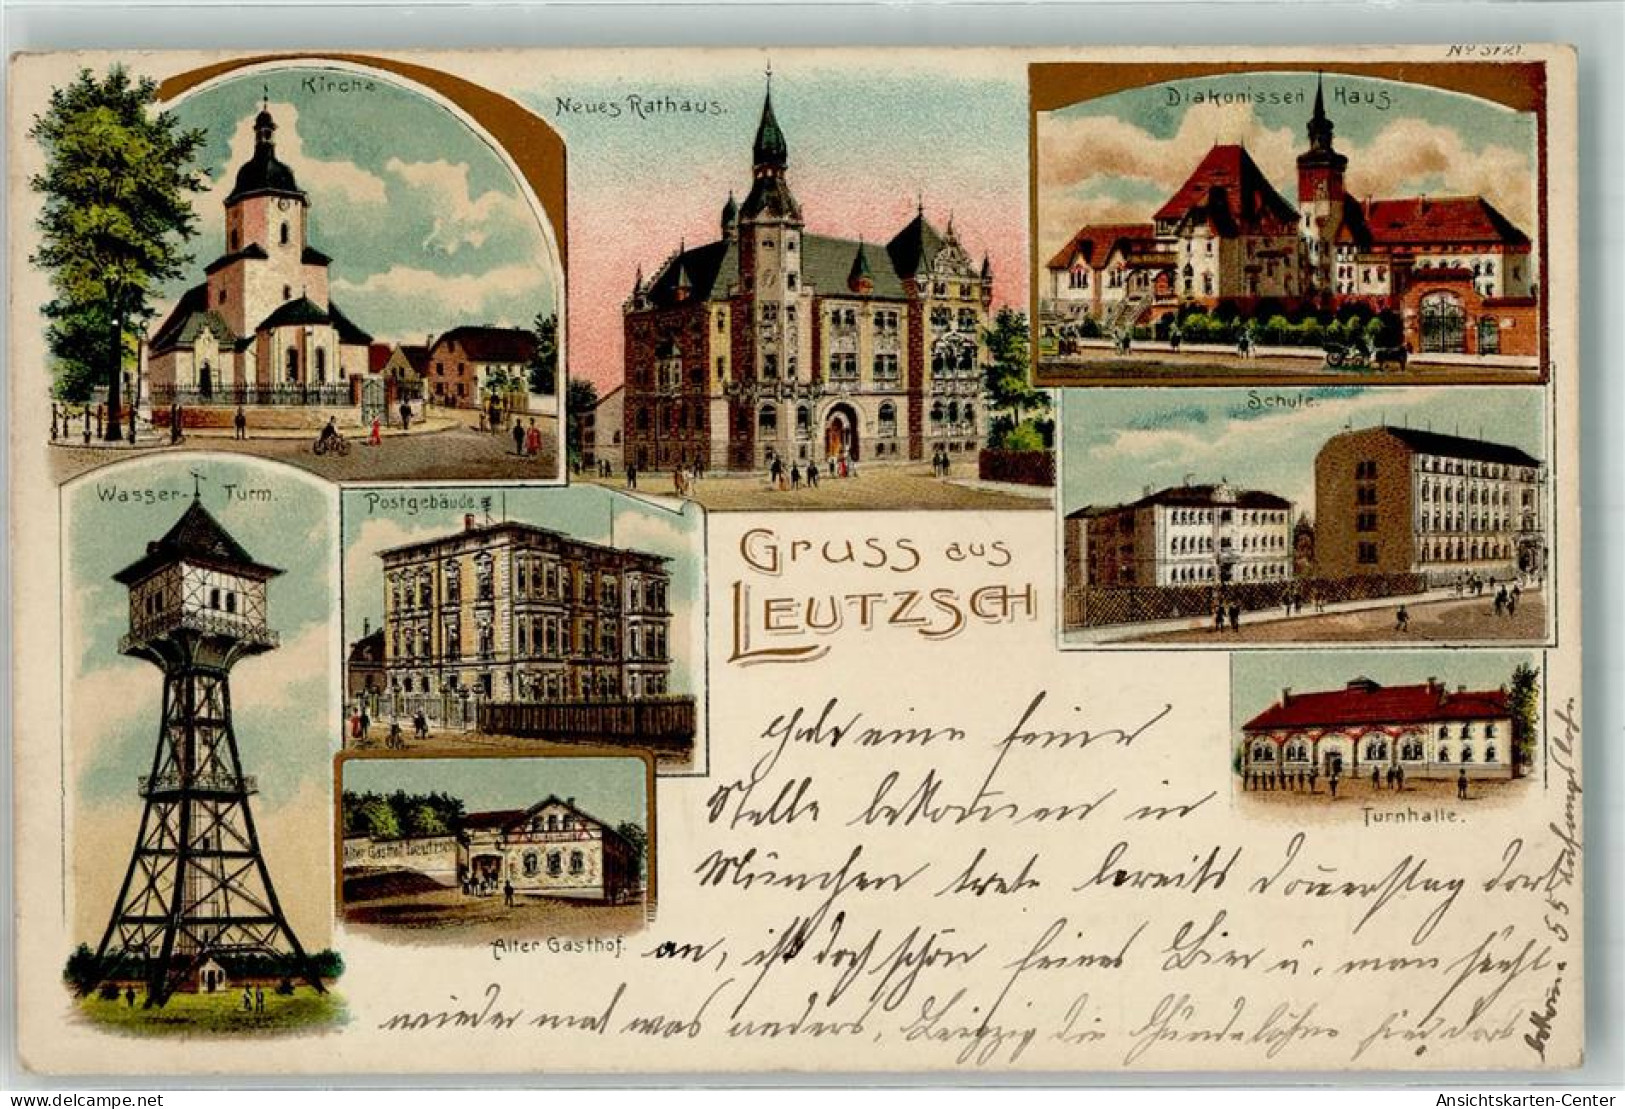 No 3721.
Kirche
Neues Rathaus.
Diakonissen Haus.
Schule.
Wasser- Turm.
Postgebäude.
Gruss aus
LEUTZSCH
Alter Gasthof Leutzsch
Alter Gasthof.
Turnhalle.
Habe eine feine
Stelle bekommen in
München trete bereits Donnerstag dort
an, ist doch schön feines Bier u. man sieht
wieder mal was anders. Leipzig die Hundelöhne sind dort
bekom. 55 Lohn
Ansichtskarten-Center